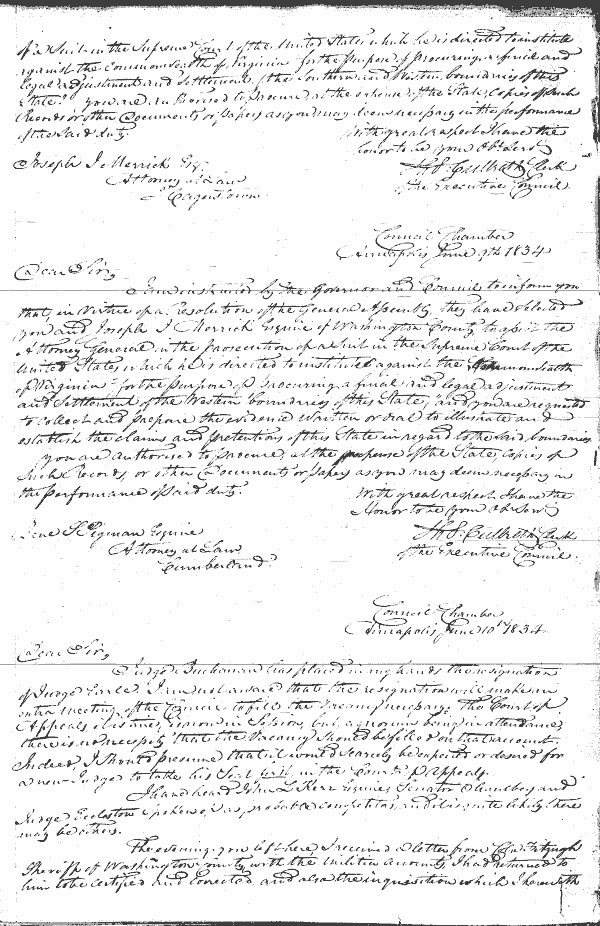 of a Suit in the Supreme Court of the United States which he is directed to institute
against the Commonwealth of Virginia "for the purpose of procuring a final and
legal adjustment and Settlement of the Southern and Western boundaries of this
State." you are authorised to procure at the expense of the State, Copies of such
Records or other Documents or papers as you may deem necessary in the performance
of the said duty.
With great respect I have the
honor to be your Obt. Servt
Joseph I. Merrick Esq.
Attorney at Law
Hagerstown
Culbreth Clerk
of the Executive Council.
Council Chamber
Annapolis June 9th 1834
Dear Sir,
I am instructed by the Governor and Council to inform you
that, in virtue of a Resolution of the General Assembly, they have selected
you and Joseph I Merrick Esquire of Washington County, to assist the
Attorney General in the prosecution of a Suit in the Supreme Court of the
United States which he is directed to institute against the Commonwealth
of Virginia "for the purpose of procuring a final and legal adjustment
and Settlement of the Western boundaries of this State, and you are requested
to collect and prepare the evidence written or oral to illustrate and
establish the claims and pretentions of this State in regard to the said boundaries
you are authorised to procure, at the expense of the State, Copies of
such Records, or other Documents or papers as you may deem necessary in
the performance of said duty.
With great respect I have the
Honor to be your Obt Servt
Pigman Esquire
Attorney at Law
Cumberland
Culbreth Clerk
of the Executive Council.
Council Chamber
Annapolis June 10th 1834
Dear Sir,
Judge Buchanan has placed in my hands the resignation
of Judge Earle. I am not aware that the resignation will make an
extra meeting of the Council to fill the vacancy necessary. The Court of
Appeals it is true, is now in Session, but, a quorum being in attendance,
there is no necessity that the vacancy should be filled on that account.
Indeed I should presume that it would scarcely be expected or desired for
a new Judge to take his Seat first, in the Court of Appeals.
I have heard John L Kerr Esquire, Senator Chambers and
Judge Eccleston spoken of as probable competitors, and it is quite likely there
may be others.
The evening you left here, I received a letter from Fitzhugh
Sheriff of Washington County with the militia accounts, I had returned to
him to be certified and corrected, and also the inquisition which I herewith